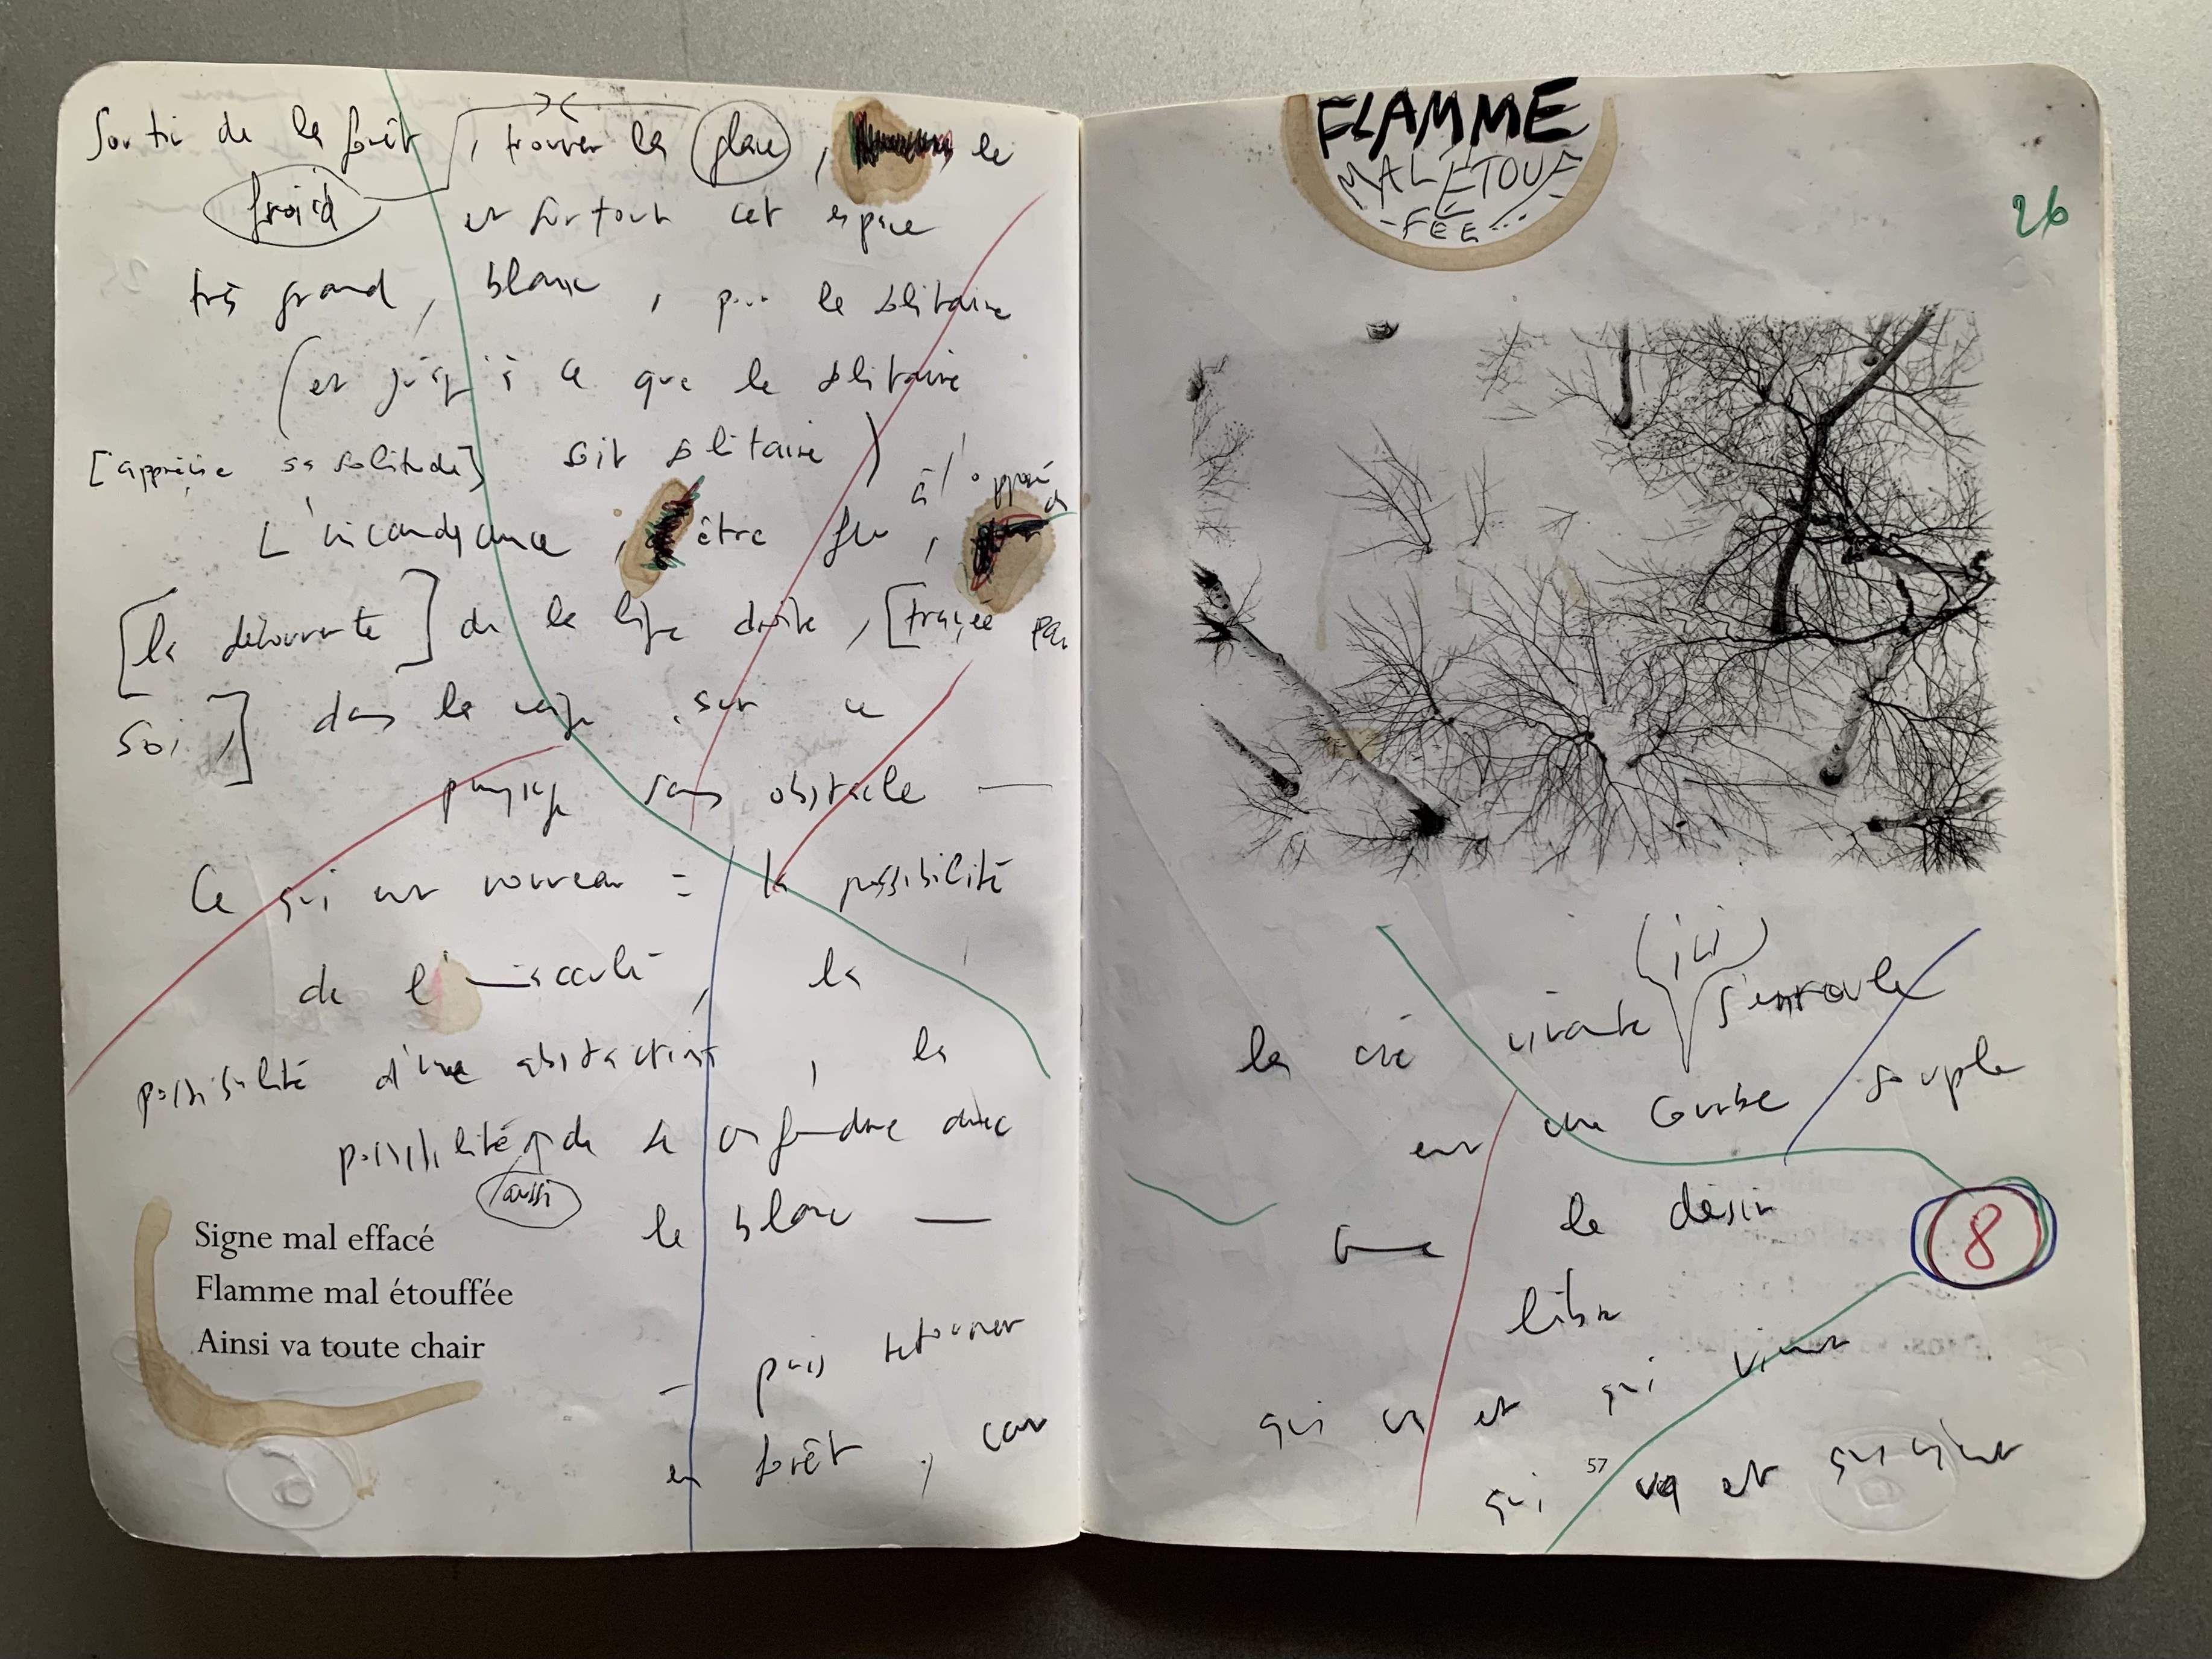 Sortir de la forêt, trouver la glace, le
froid et surtout cet espace
très grand, blanc, pour le solitaire
(et jusqu'à ce que le solitaire
[apprécie sa solitude] soit solitaire)
à l'opposé
L'incandescence, être feu,
[la découverte] de la ligne droite, [tracée par
soi,] dans la neige, sur ce
paysage sans obstacle —
Ce qui est nouveau = la possibilité
de l'immaculé, la
possibilité d'une abstraction, la
possibilité de se confondre avec
aussi
le blanc —
Signe mal effacé
Flamme mal étouffée
Ainsi va toute chair
— puis retourner
en forêt, car
FLAMME
MAL ÉTOUF
-FÉE...
26
(ici)
la vivante s'enroule
est une courbe souple
comme le désir
libre
8
qui va et qui vient
57
qui va et qui vient